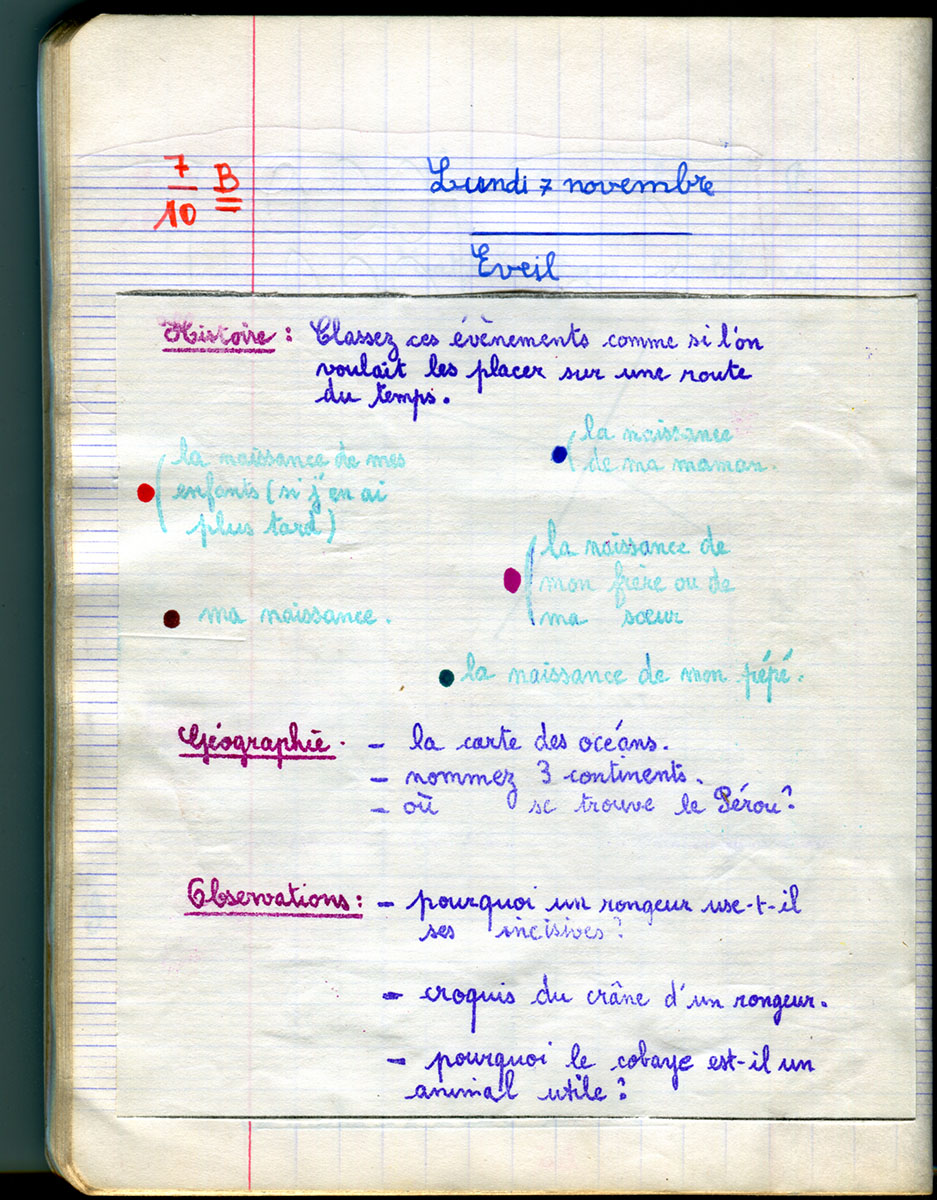 7 B
10
Lundi 7 novembre
Eveil
Histoire : Classez ces évènements comme si l'on
voulait les placer sur une route
du temps.
la naissance de mes
enfants (si j'en ai
plus tard)
la naissance
de ma maman.
la naissance de
mon frère ou de
ma sœur
ma naissance.
la naissance de mon pépé.
Géographie. - la carte des océans.
- nommez 3 continents.
- où se trouve le Pérou?
Observations : - pourquoi un rongeur use-t-il
ses incisives?
- croquis du crâne d'un rongeur.
- pourquoi le cobaye est-il un
animal utile?